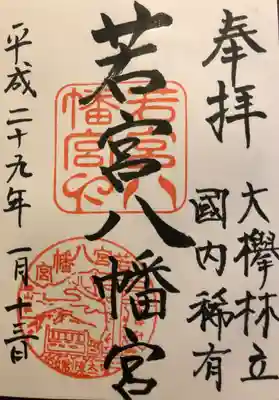 奉拝
大欅林立
國内稀有
若宮八幡宮
若宮八
幡宮印
平成二十九年 一月十三日